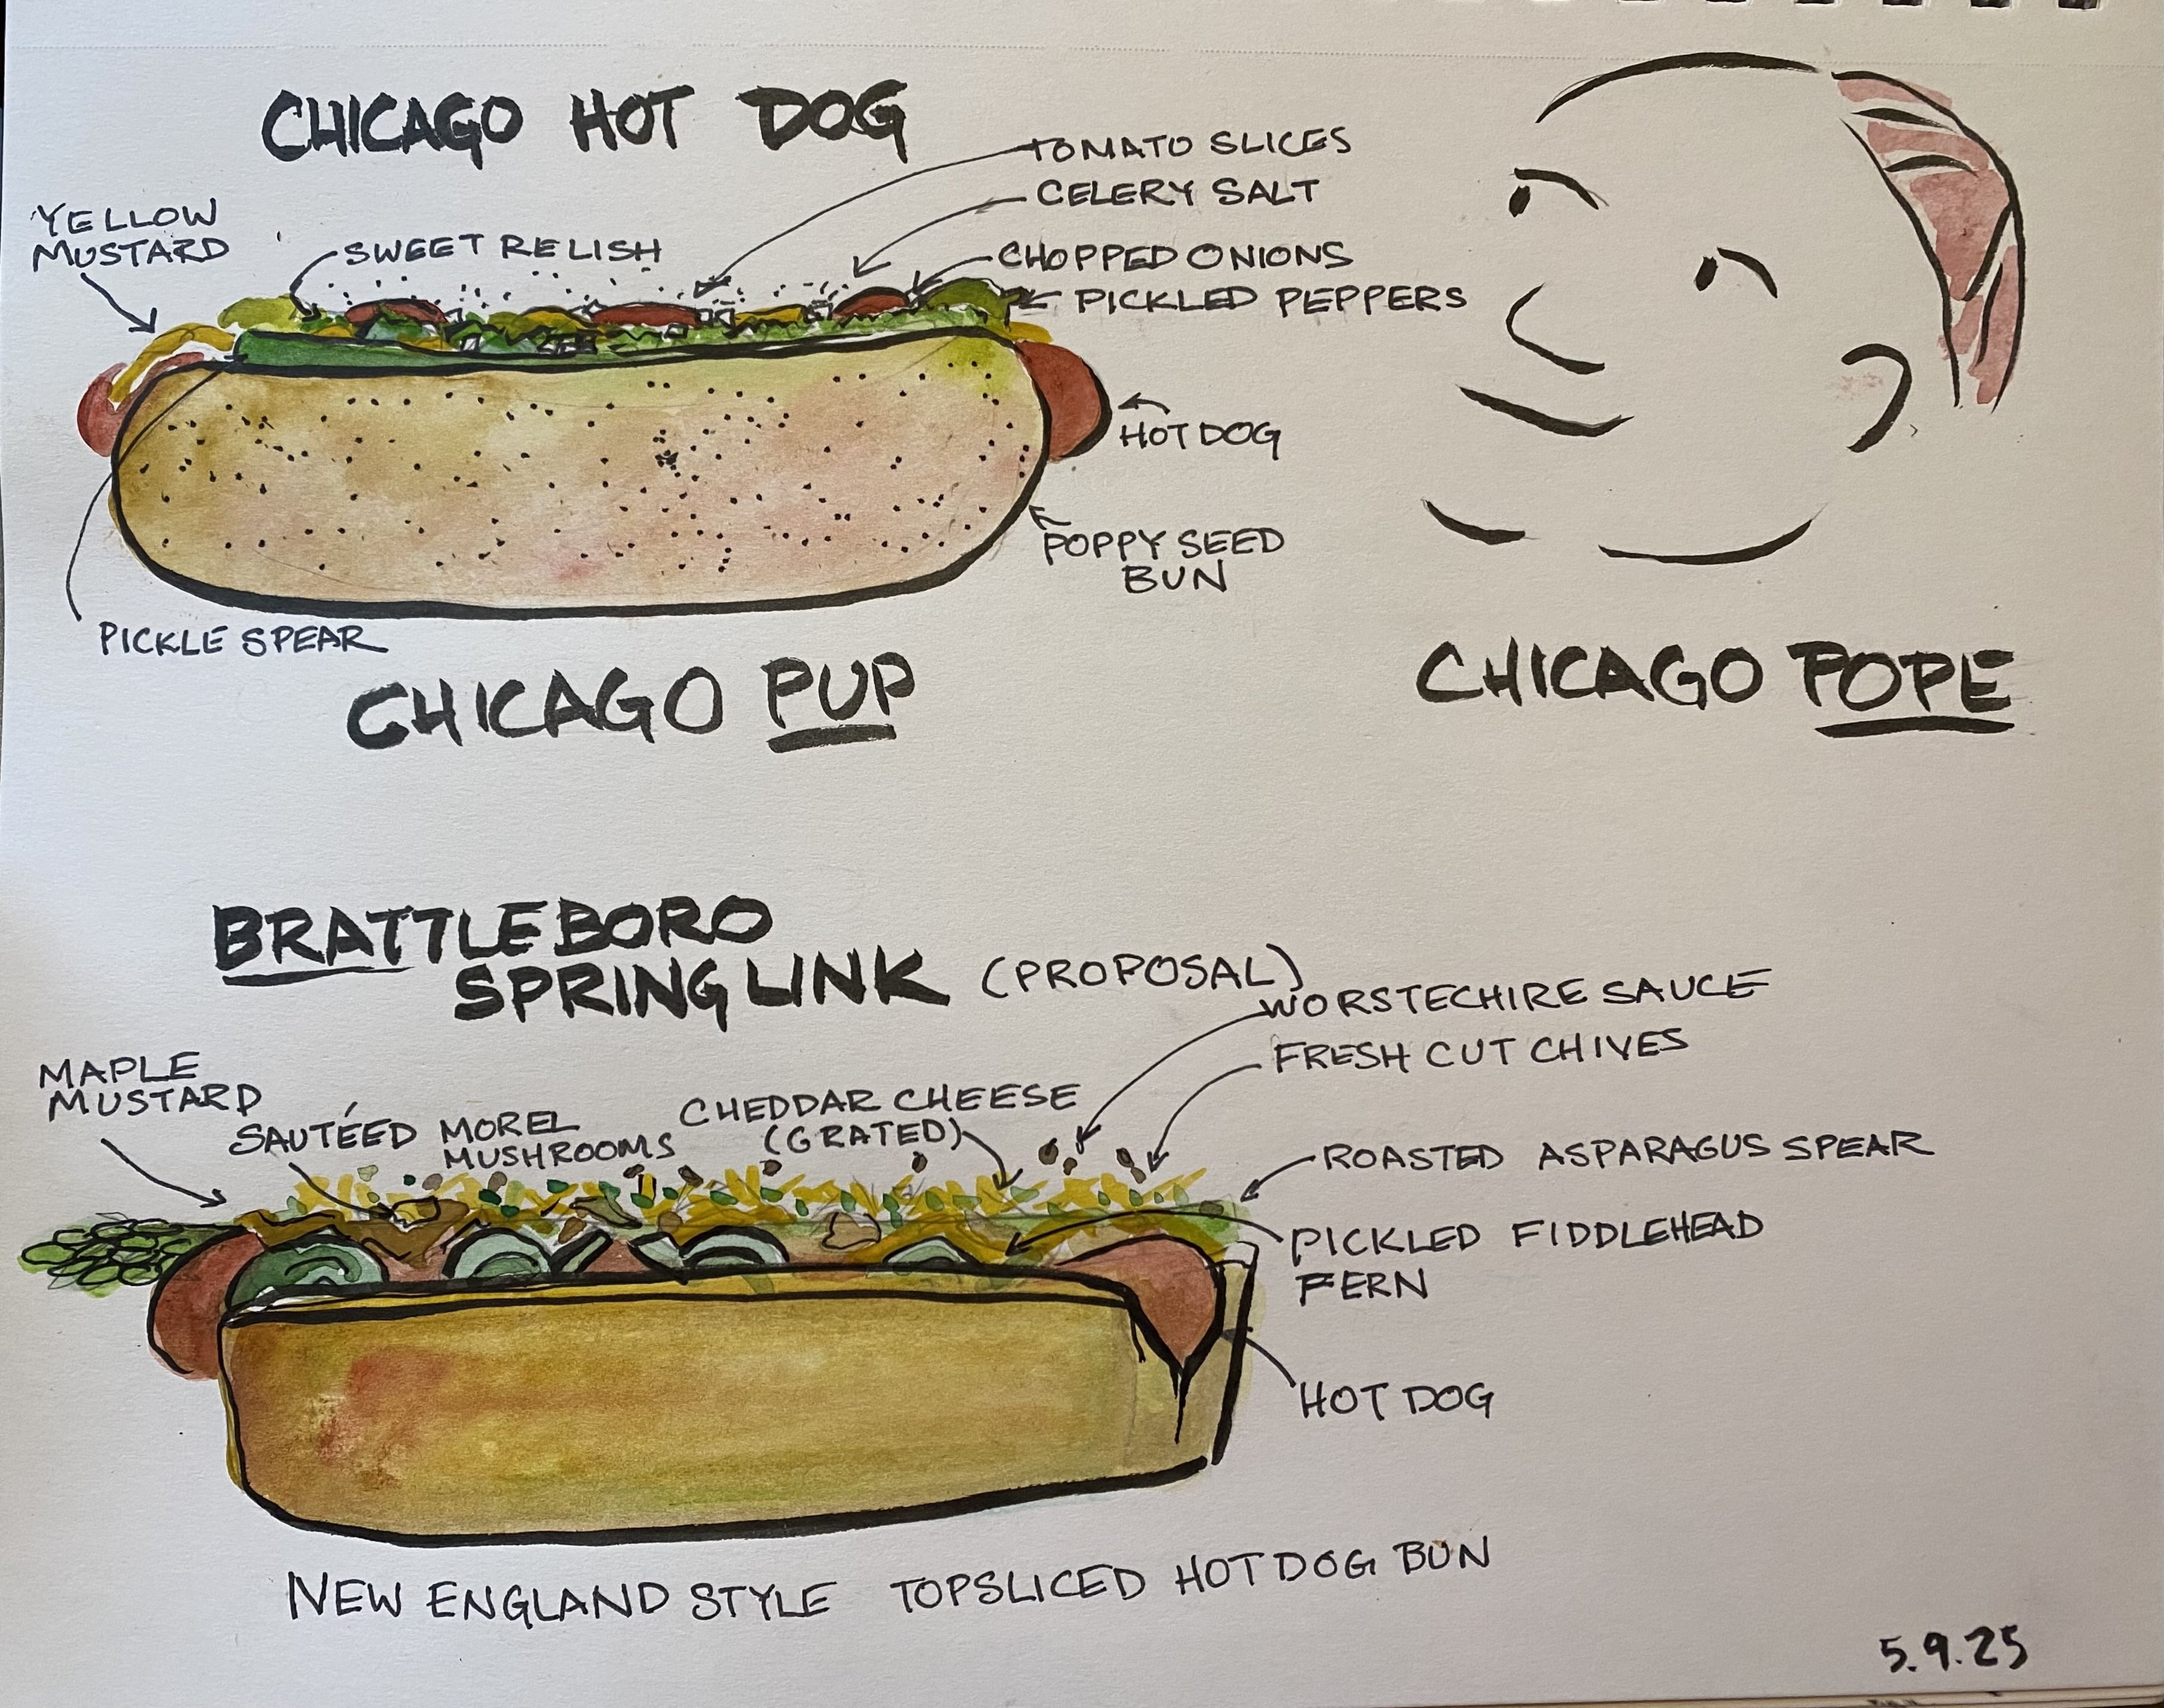 CHICAGO HOT DOG
YELLOW
MUSTARD
SWEET RELISH
TOMATO SLICES
CELERY SALT
CHOPPED ONIONS
PICKLED PEPPERS
HOT DOG
POPPY SEED
BUN
PICKLE SPEAR
CHICAGO PUP
CHICAGO POPE
BRATTLEBORO
SPRING LINK (PROPOSAL)
MAPLE
MUSTARD
SAUTÉED MOREL
MUSHROOMS
CHEDDAR CHEESE
(GRATED)
WORSTECHIRE SAUCE
FRESH CUT CHIVES
ROASTED ASPARAGUS SPEAR
PICKLED FIDDLEHEAD
FERN
HOT DOG
NEW ENGLAND STYLE TOPSLICED HOTDOG BUN
5.9.25